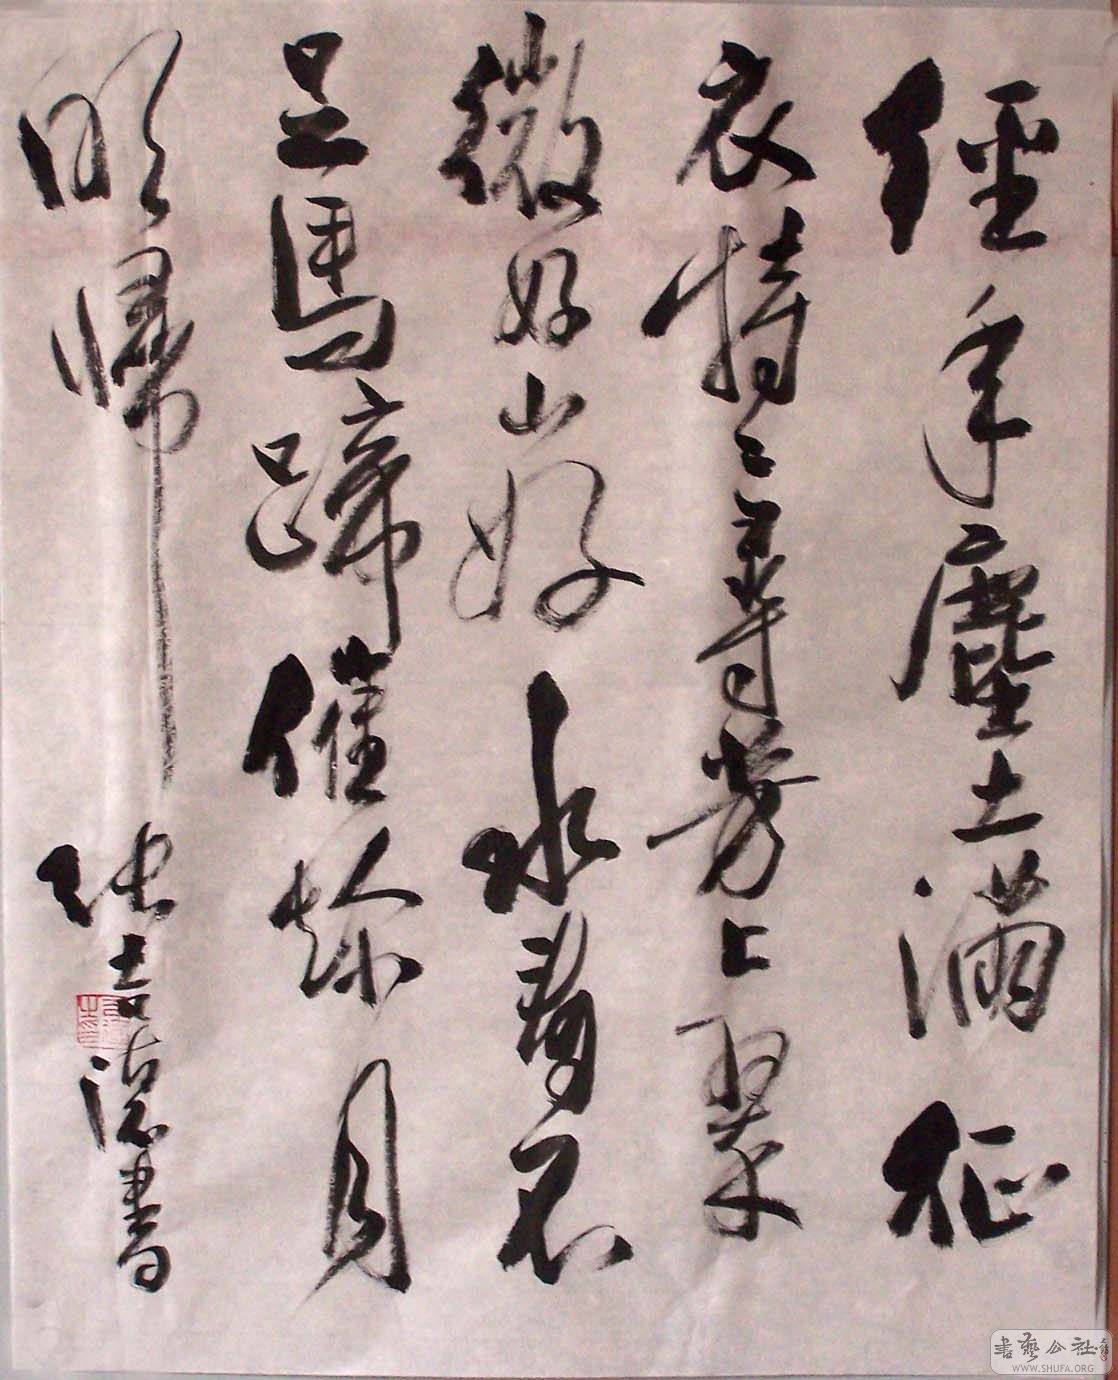 經年塵土滿征
衣特々尋芳上翠
微好山好水看不
足馬蹄催趁月
明歸
吉 書
書藝公社
WWW.SHUFA.ORG